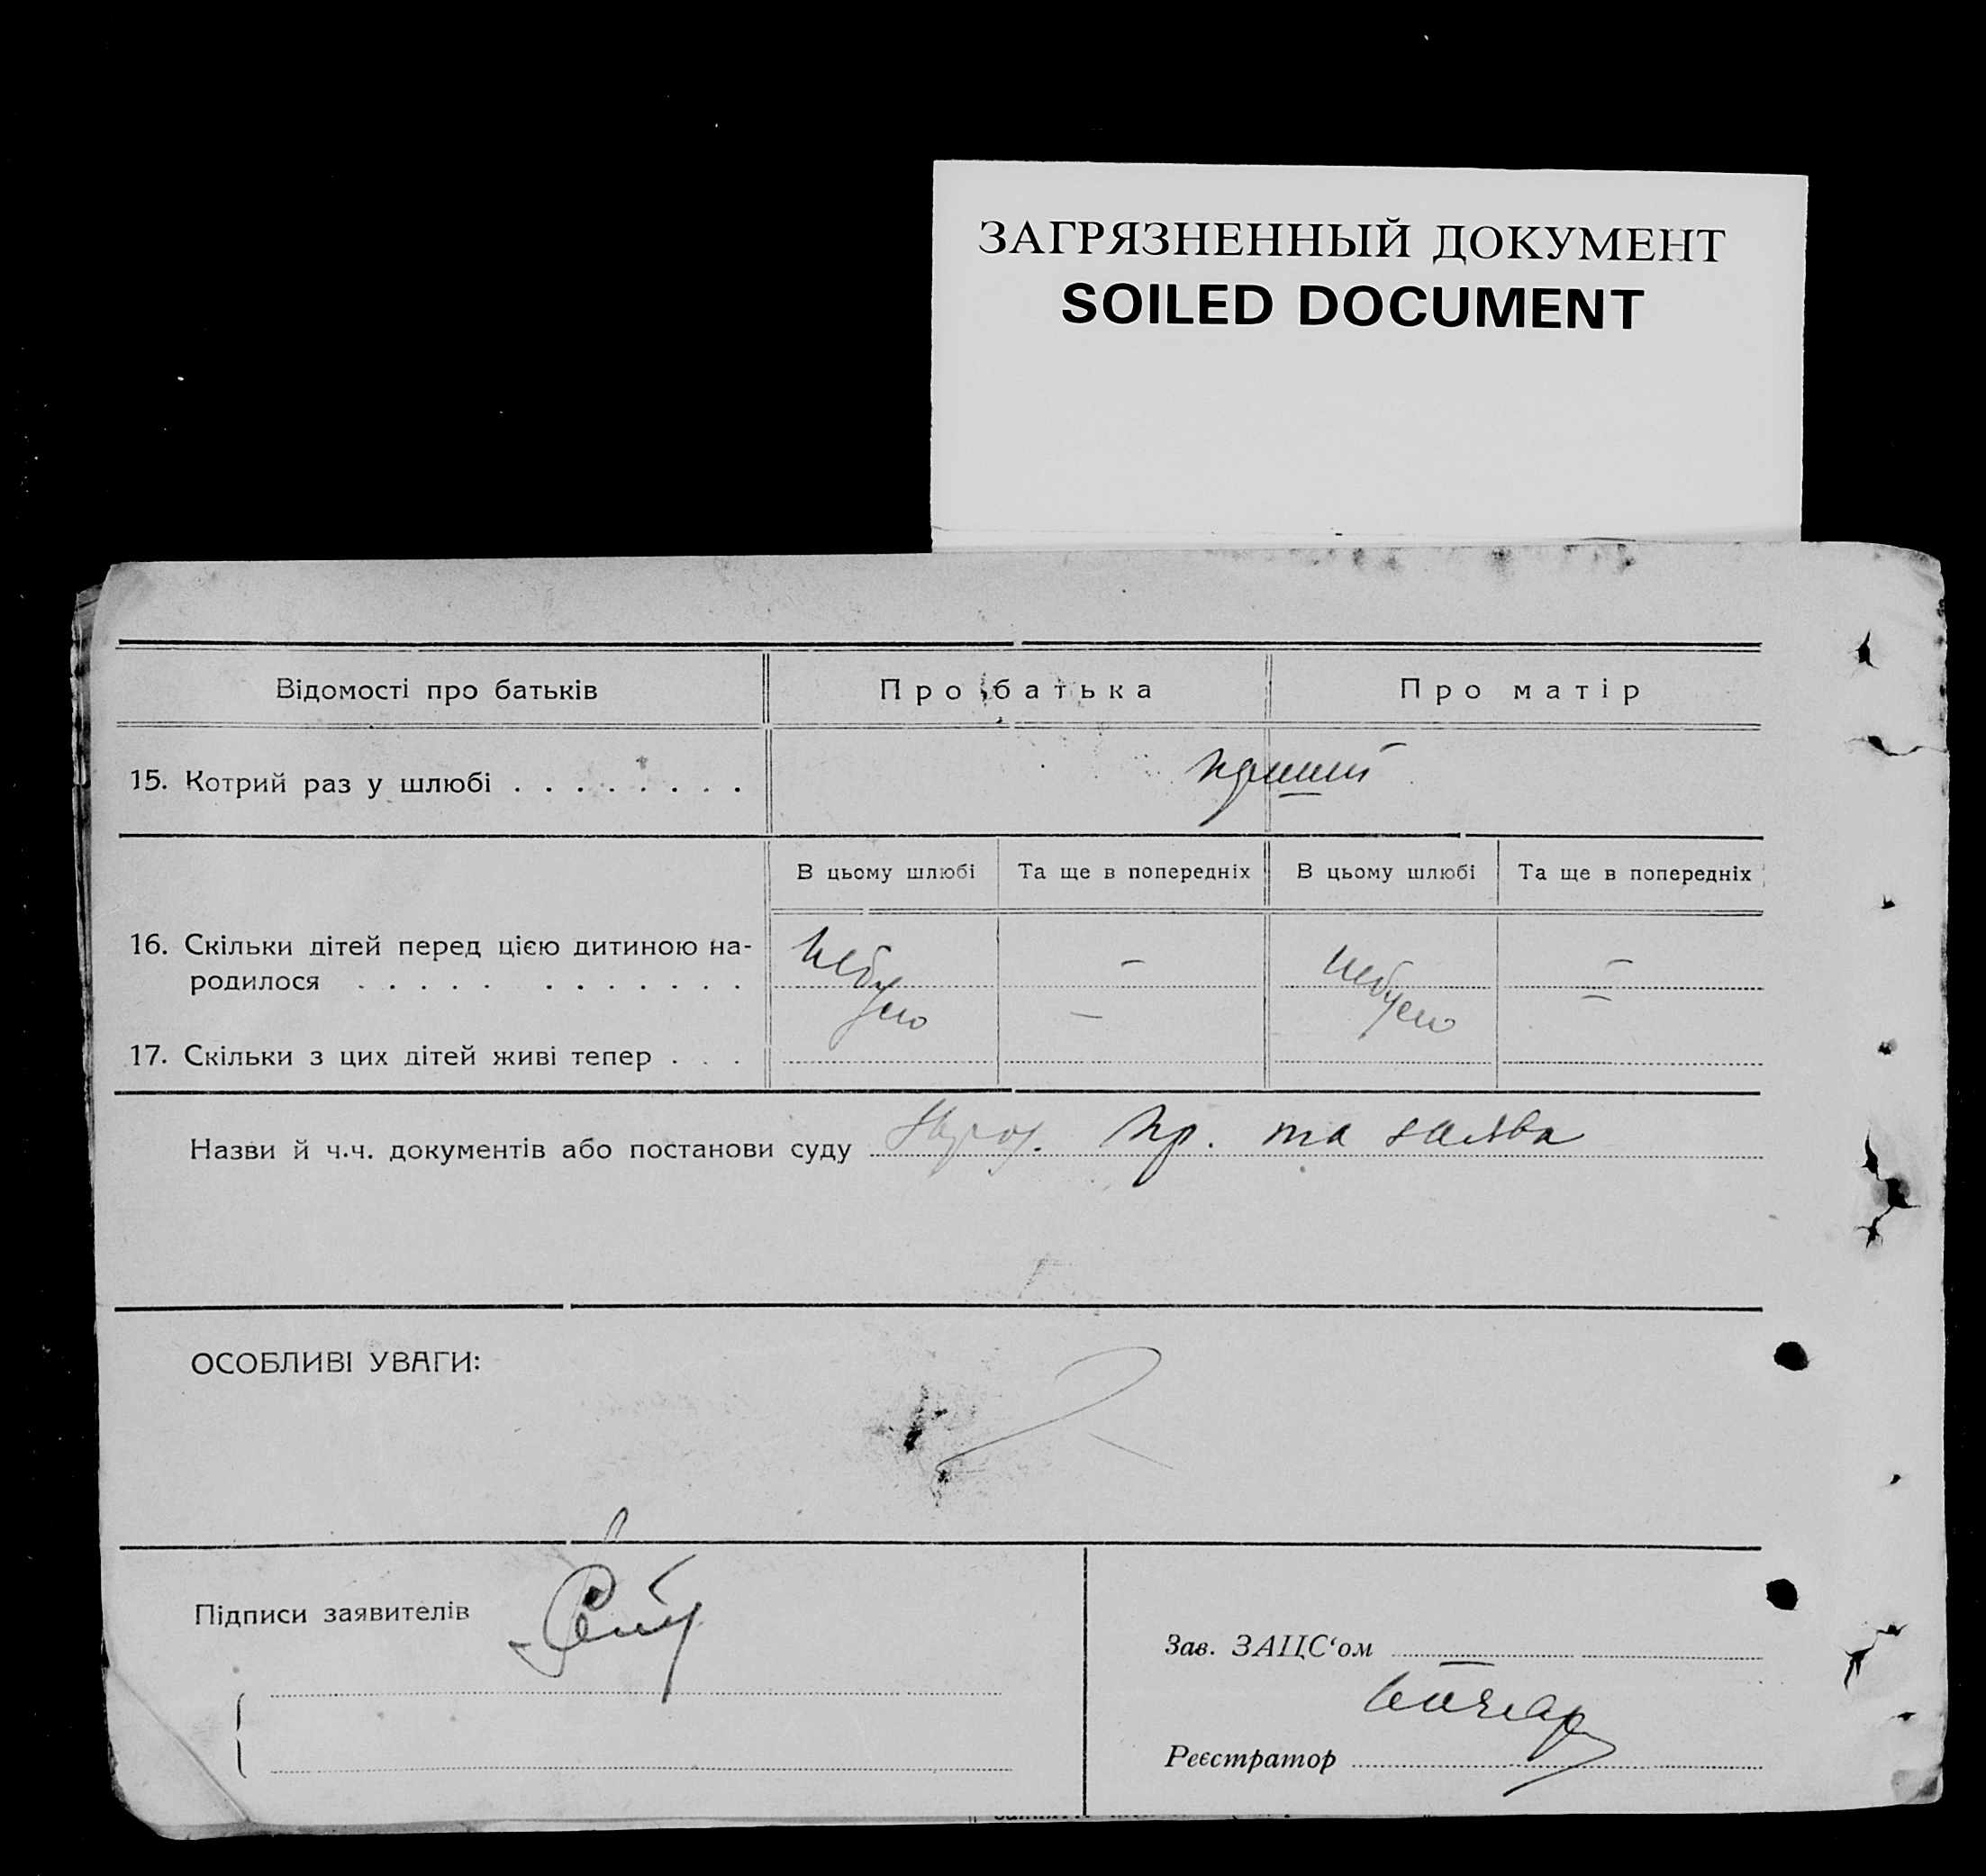 ЗАГРЯЗНЕННЫЙ ДОКУМЕНТ
SOILED DOCUMENT
Відомості про батьків Про батька Про матір
15. Котрий раз у шлюбі . . . . . . . .
В цьому шлюбі Та ще в попередніх В цьому шлюбі Та ще в попередніх
16. Скільки дітей перед цією дитиною на-
родилося . . . . . . . . . . . . небуло — небуло —
17. Скільки з цих дітей живі тепер . . . —
Назви й ч.ч. документів або постанови суду пр. та заява
ОСОБЛИВІ УВАГИ:
Підписи заявителів
Зав. ЗАЦС‘ом
Реєстратор